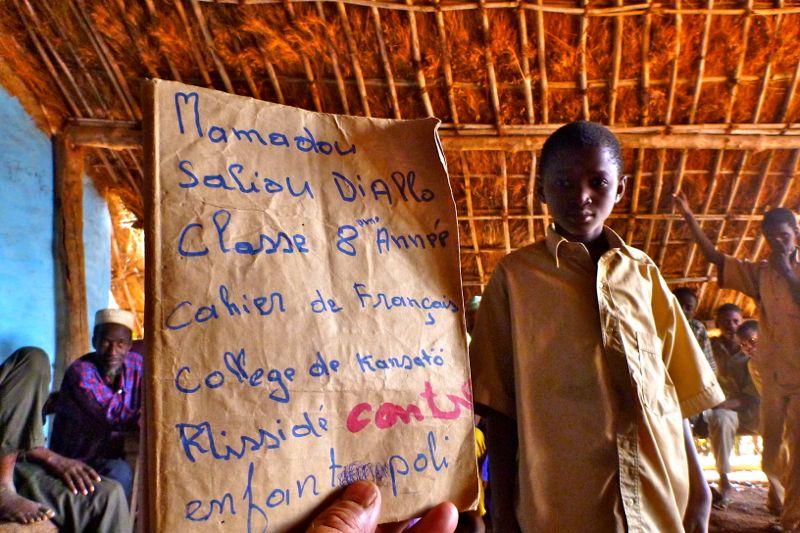 Mamadou
Saliou Diallo
Classe 8ème Année
Cahier de Français
College de Kansato
Klissidé
enfant poli